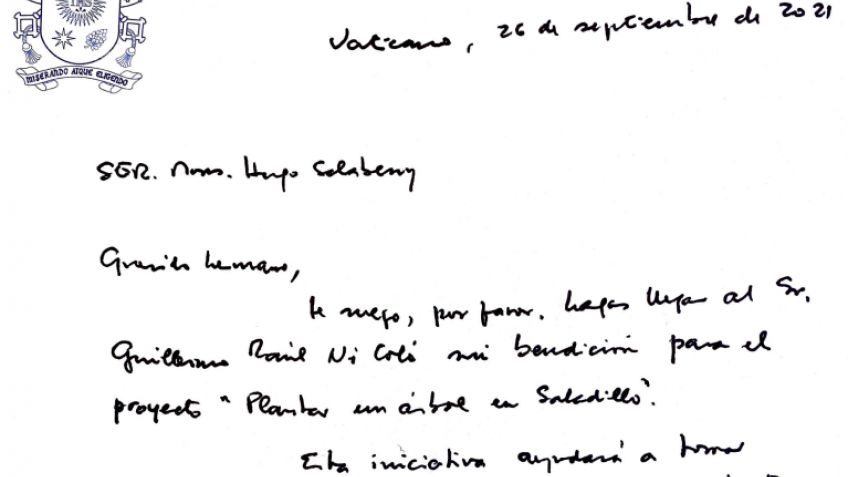 IHS
MISERANDO ATQUE ELIGENDO
Vaticano, 26 de septiembre de 2021
SER. Mons. Hugo Salaberry
Querido hermano,
te ruego, por favor, hagas llegar al Sr.
Guillermo Raúl Ni Coló mi bendición para el
proyecto "Plantar un árbol en Saladillo".
Esta iniciativa ayudará a tomar